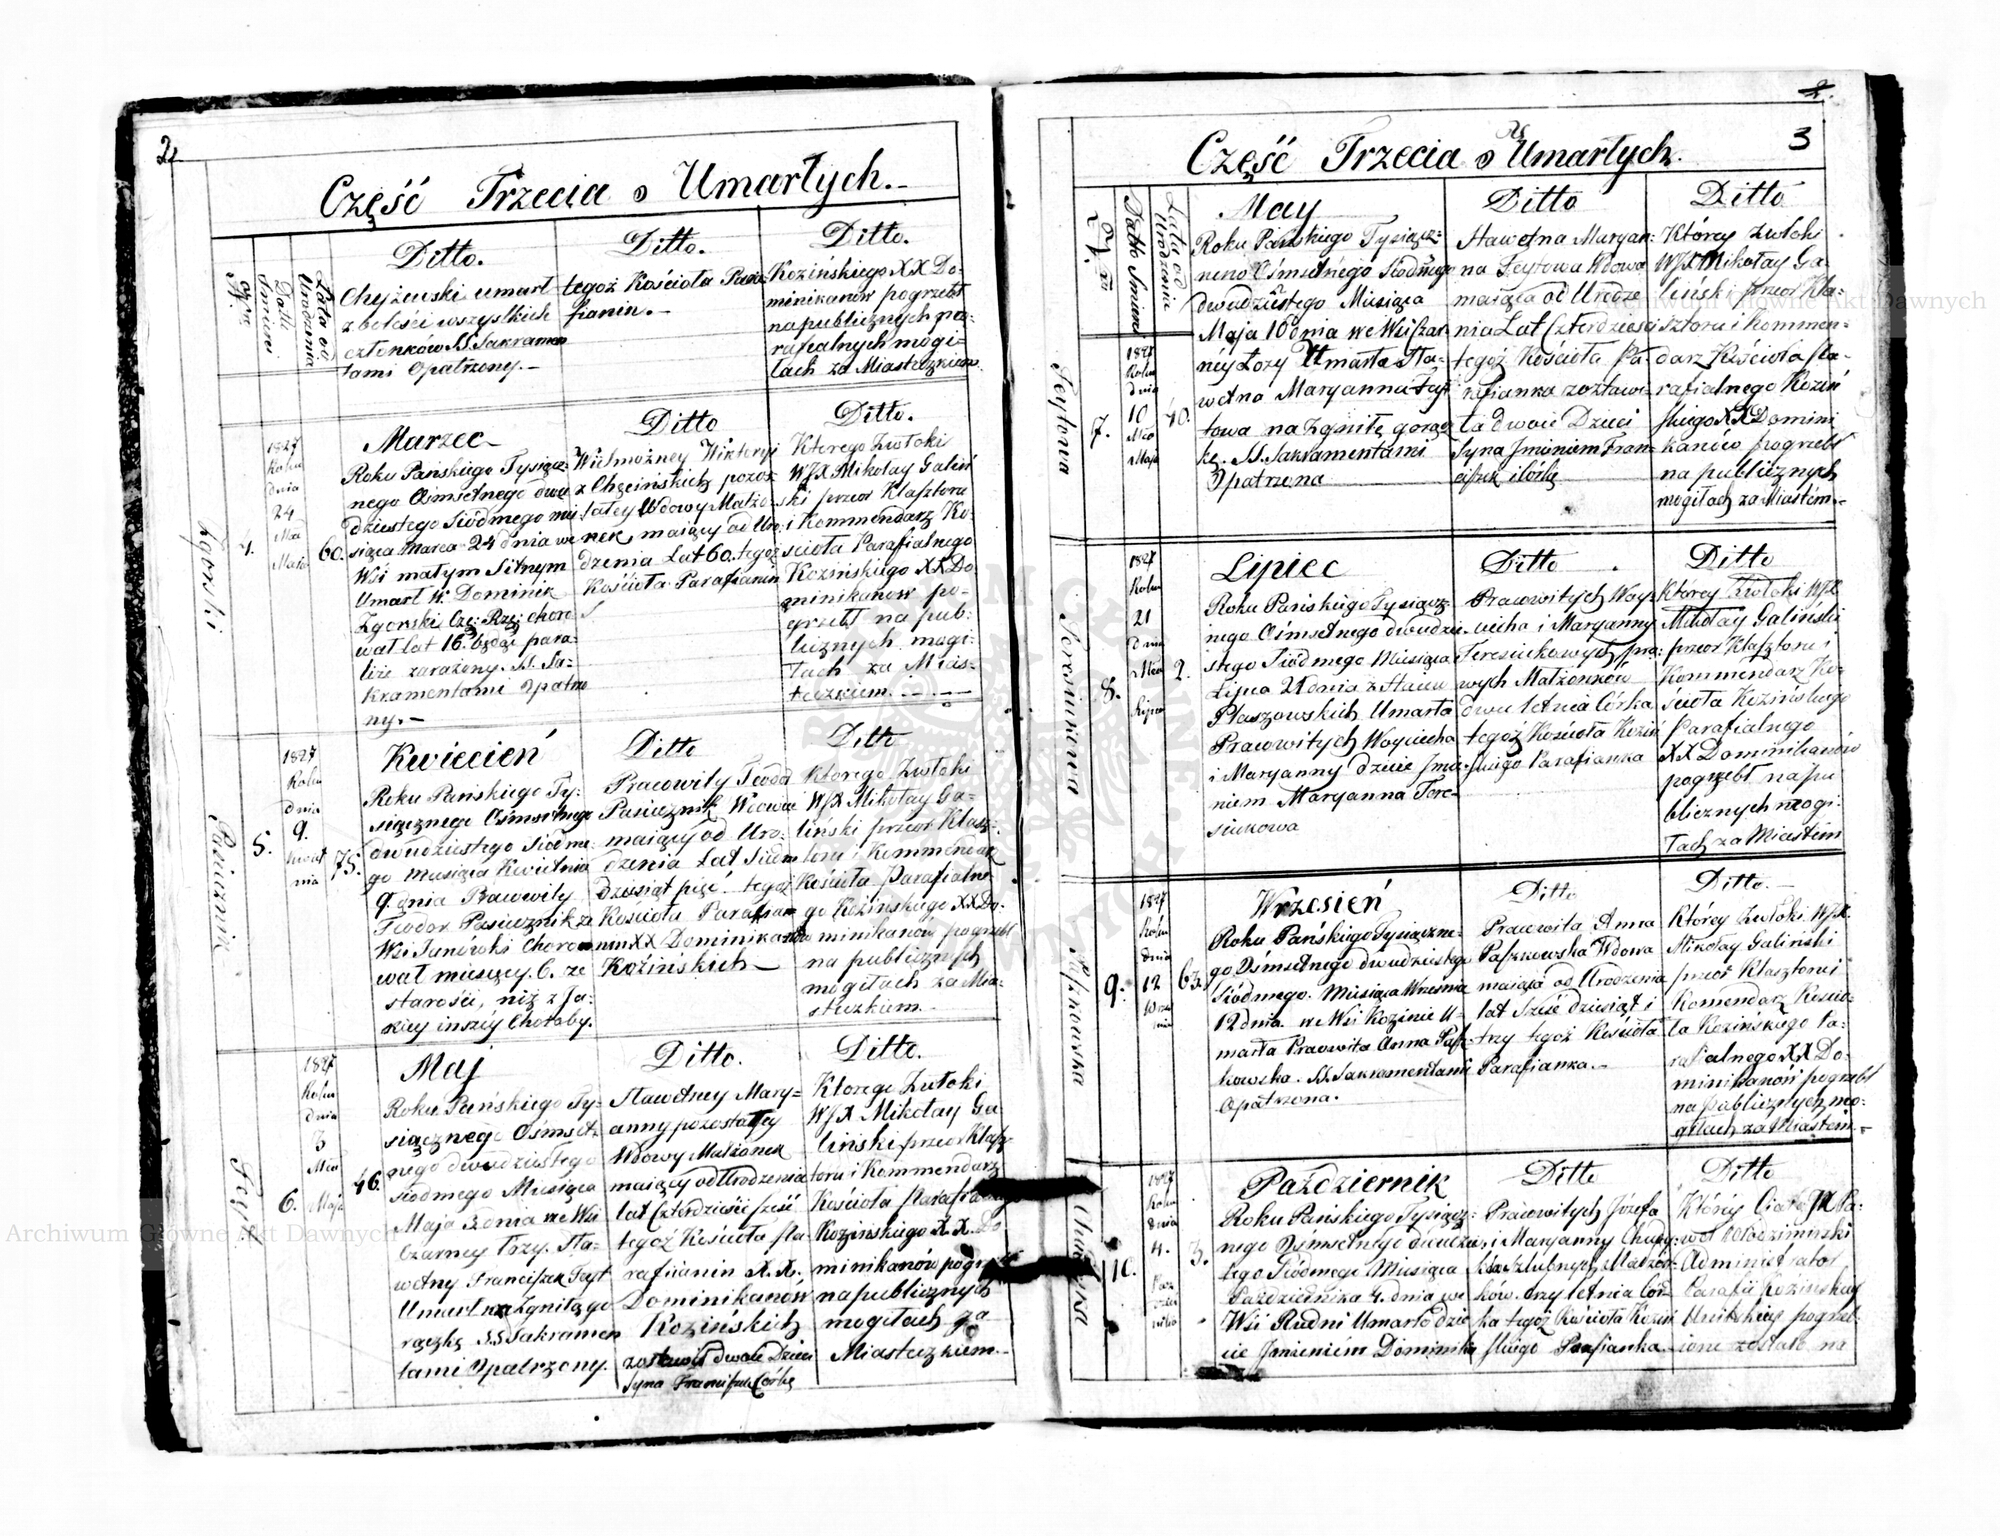 2
Część Trzecia o Umarłych.
Ditto.
Chyżewski umarł
z boleści wszystkich
członków SS. Sakramen
tami Opatrzony.
Ditto.
tegoż Kościoła Para
fianin.
Ditto.
Kozińskiego XX Do-
minikanów pogrzebł
na publicznych pa-
rafialnych mogi-
łach za Miasteczkiem.
Zgorski
4.
1827
Roku
dnia
24
Mca
Marca
60.
Marzec
Roku Pańskiego Tysiącz-
nego Ośmsetnego dwu
dziestego Siódmego mie
siąca Marca 24 dnia we
Wsi małym Sitnym
Umarł W. Dominik
Zgorski Cze: Rze: choro
wał lat 16. będąc para-
liże zarażony. SS. Sa-
kramentami Opatrzo
ny.
Ditto
Wielmożney Wiktoryi
z Chęcińskich pozos-
tałey Wdowy Małżo-
nek, maiący od Uro-
dzenia Lat 60. tegoż
Kościoła Parafianin
Ditto.
Którego Zwłoki
WJX Mikołay Galiń
ski przeor Klasztoru
i Kommendarz Ko-
ścioła Parafialnego
Kozińskiego XX Do-
minikanow po-
grzebł na pub-
licznych mogi-
łach za Mias-
teczkiem.
Pasiecznik
5.
1827
Roku
dnia
9.
Kwiet
nia
75.
Kwiecień
Roku Pańskiego Ty-
siącznego Ośmsetnego
dwudziestego Siódme-
go miesiąca Kwietnia
9. dnia Pracowity
Teodor Pasiecznik ze
Wsi Janówki Choro
wał miesięcy 6. ze
starości, niż z Ja-
kiey inszéy Choroby.
Ditto
Pracowity Teodor
Pasiecznik Wdowiec
maiący od Uro-
dzenia Lat Siedm
dziesiąt pięć tegoż
Kościoła Parafia
nin XX Dominikanów
Kozińskich
Ditto
Którego Zwłoki
WJX Mikołay Ga-
liński przeor Klasz-
toru i Kommendarz
Kościoła Parafialne-
go Kozińskiego XX Do-
minikanów pogrzebł
na publicznych
mogiłach za Mia-
steczkiem.
Feyt
6.
1827
Roku
dnia
3
Mca
Maja
46.
Maj
Roku Pańskiego Ty-
siącznego Ośmset-
nego dwudziestego
siódmego Miesiąca
Maja 3 dnia we Wsi
Czarney Łozy. Sła-
wetny Franciszek Feyt
Umarł na Zgniłą go
rączkę SS Sakramen
tami Opatrzony.
Ditto.
Sławetney Mary-
anny pozostałey
Wdowy Małżonek
maiący od Urodzenia
lat Czterdzieści sześć
tegoż Kościoła Pa
rafiianin X.X.
Dominikanów
Kozińskich
zostawił dwoie Dzieci
Syna Franciszek Córkę
Ditto.
Którego Zwłoki
WJX Mikołay Ga
liński przeor Klasz
toru i Kommendarz
Kościoła Parafialnego
Kozińskiego X.X. Do-
minikanów pogrzebł
na publicznych
mogiłach za
Miasteczkiem.
3
Część Trzecia o Umarłych.
Lata od
Urodzenia
Feytowa
7.
1827
Roku
dnia
10
Mca
Maja
40.
May
Roku Pańskiego Tysiącz-
neno Ośmsetnego Siodmego
dwudziestego Miesiąca
Maja 10 dnia we Wsi Czar-
néy Łozy Umarła Sła-
wetna Maryanna Fey
towa na Zgniłę gorącz
kę. SS. Sakramentami
Opatrzona
Ditto
Sławetna Maryan-
na Feytowa Wdowa
maiąca od Urodze
nia Lat Czterdzieści
tegoż Kościoła Pa-
rafianka zostawi-
ła dwoie Dzieci
Syna Jmieniem Fran-
ciszek i Córkę
Ditto
Którey zwłoki
WJX Mikołay Ga-
liński przeor Kla-
sztoru i Kommen-
darz Kościoła Pa-
rafialnego Koziń
skiego XX Domini
kanów pogrzebł
na publicznych
mogiłach za Miastem.
Tereniukowa
8.
1827
Roku
21
dnia
Mca
Lipca
2.
Lipiec
Roku Pańskiego Tysiącz-
nego Ośmsetnego dwudzie-
stego Siódmego Miesiąca
Lipca 21 dnia z Stawu
Ptaszowskich Umarła
Pracowitych Woyciecha
i Maryanny dziecie Jmie-
niem Maryanna Tere-
siukowa
Ditto
Pracowitych Woy-
ciecha i Maryanny
Teresiukowych pra-
wych Małżonków
dwu letnia Córka
tegoż Kościoła Koziń
skiego Parafianka
Ditto
Którey Zwłoki WJX
Mikołay Galiński
przeor Klasztoru i
Kommendarz Ko-
ścioła Kozińskiego
Parafialnego
XX Dominikanów
pogrzebł na pu
blicznych mogi-
łach za Miastem
Paszkowska
9.
1827
Roku
dnia
12
Wrze
nia
63.
Wrzesień
Roku Pańskiego Tysiączne-
go Ośmsetnego dwudziestego
Siódmego. Miesiąca Września
12 dnia. we Wsi Kozinie U-
marła Pracowita Anna Pasz
kowska. SS. Sakramentami
Opatrzona.
Ditto
Pracowita Anna
Paszkowska Wdowa
maiąca od Urodzenia
lat Sześć dziesiąt i
trzy tegoż Kościoła
Parafianka.
Ditto.
Którey Zwłoki WJX.
Mikołay Galiński
przeor Klasztoru i
Komendarz Koscio-
ła Kozińskiego Pa-
rafialnego XX Do-
minikanów pogrzebł
na publicznych mo-
giłach za Miastem.
10.
1827
Roku
dnia
4.
Paź
dzier
nika
3.
Październik
Roku Pańskiego Tysiącz-
nego Ośmsetnego dwudzies
tego Siódmego Miesiąca
Października 4. dnia we
Wsi Rudni Umarło dzie
cie Jmieniem Dominika
Ditto
Pracowitych Józefa
i Maryanny
Szlubnych Małżon-
ków. trzy letnia Cór
ka tegoż Kościoła Koziń
skiego Parafianka
Ditto
Którey Ciało JX Pa-
weł Włodzimirski
Administrator
Parafii Kozińskiey
Unitskiey pogrzeb-
ione zostało na
Archiwum Główne Akt Dawnych
Archiwum Główne Akt Dawnych